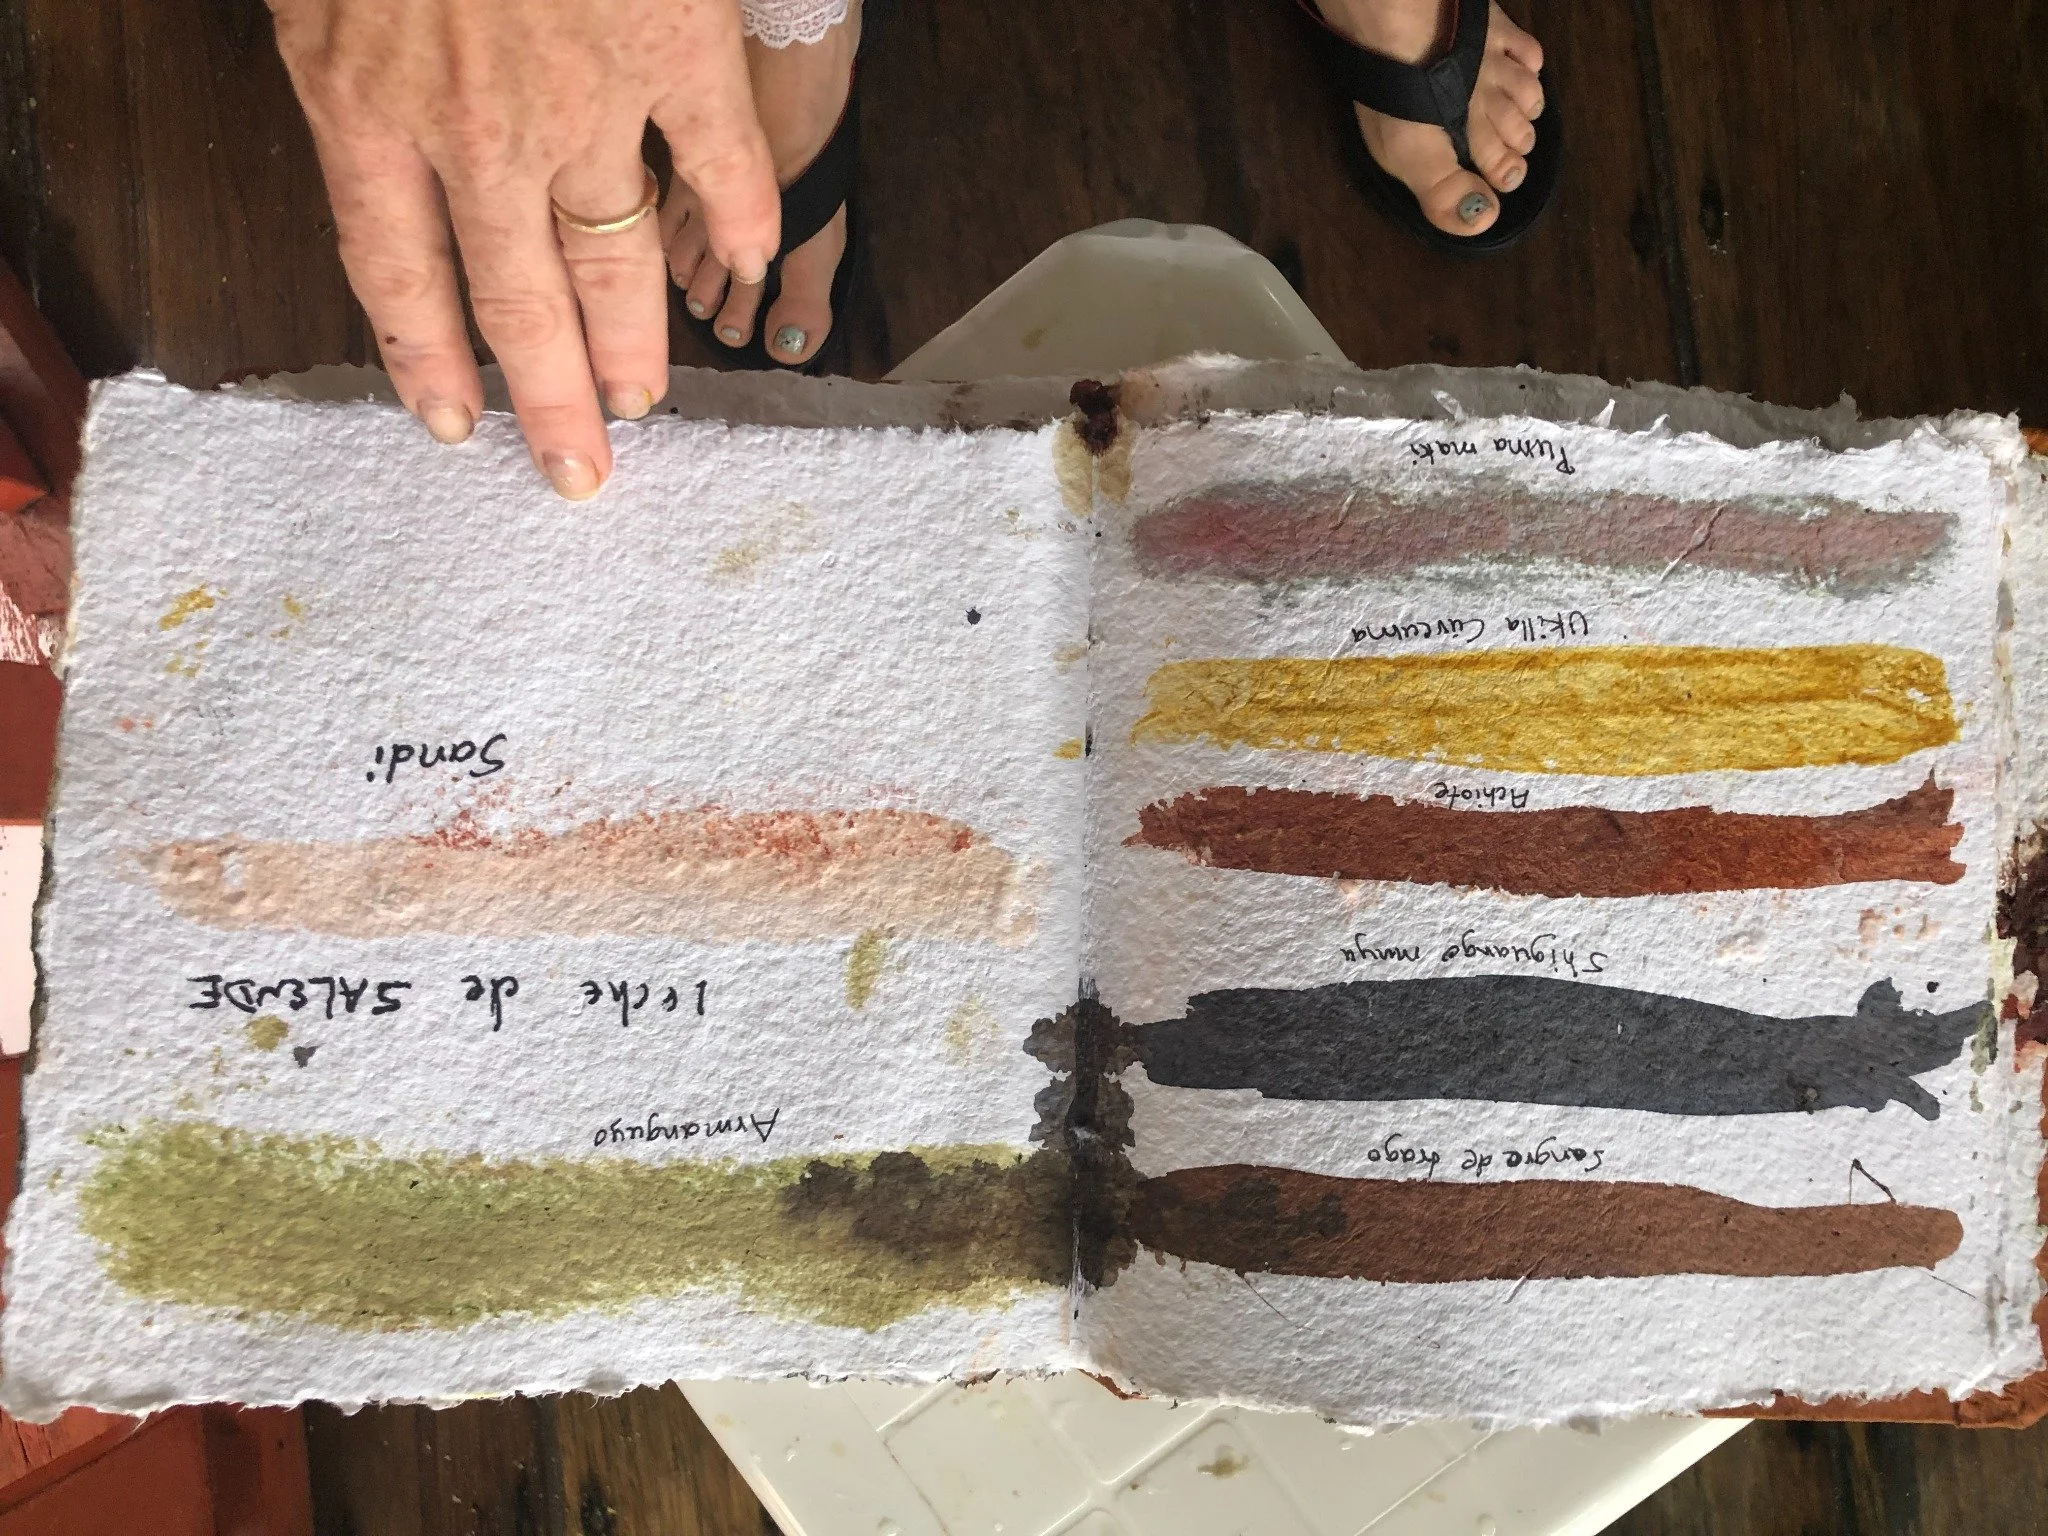 Sangre de drago
Shiguango muyu
Achiote
Ukilla Cúrcuma
Puma maki
Armanguyo
Leche de SALENDE
Sandi